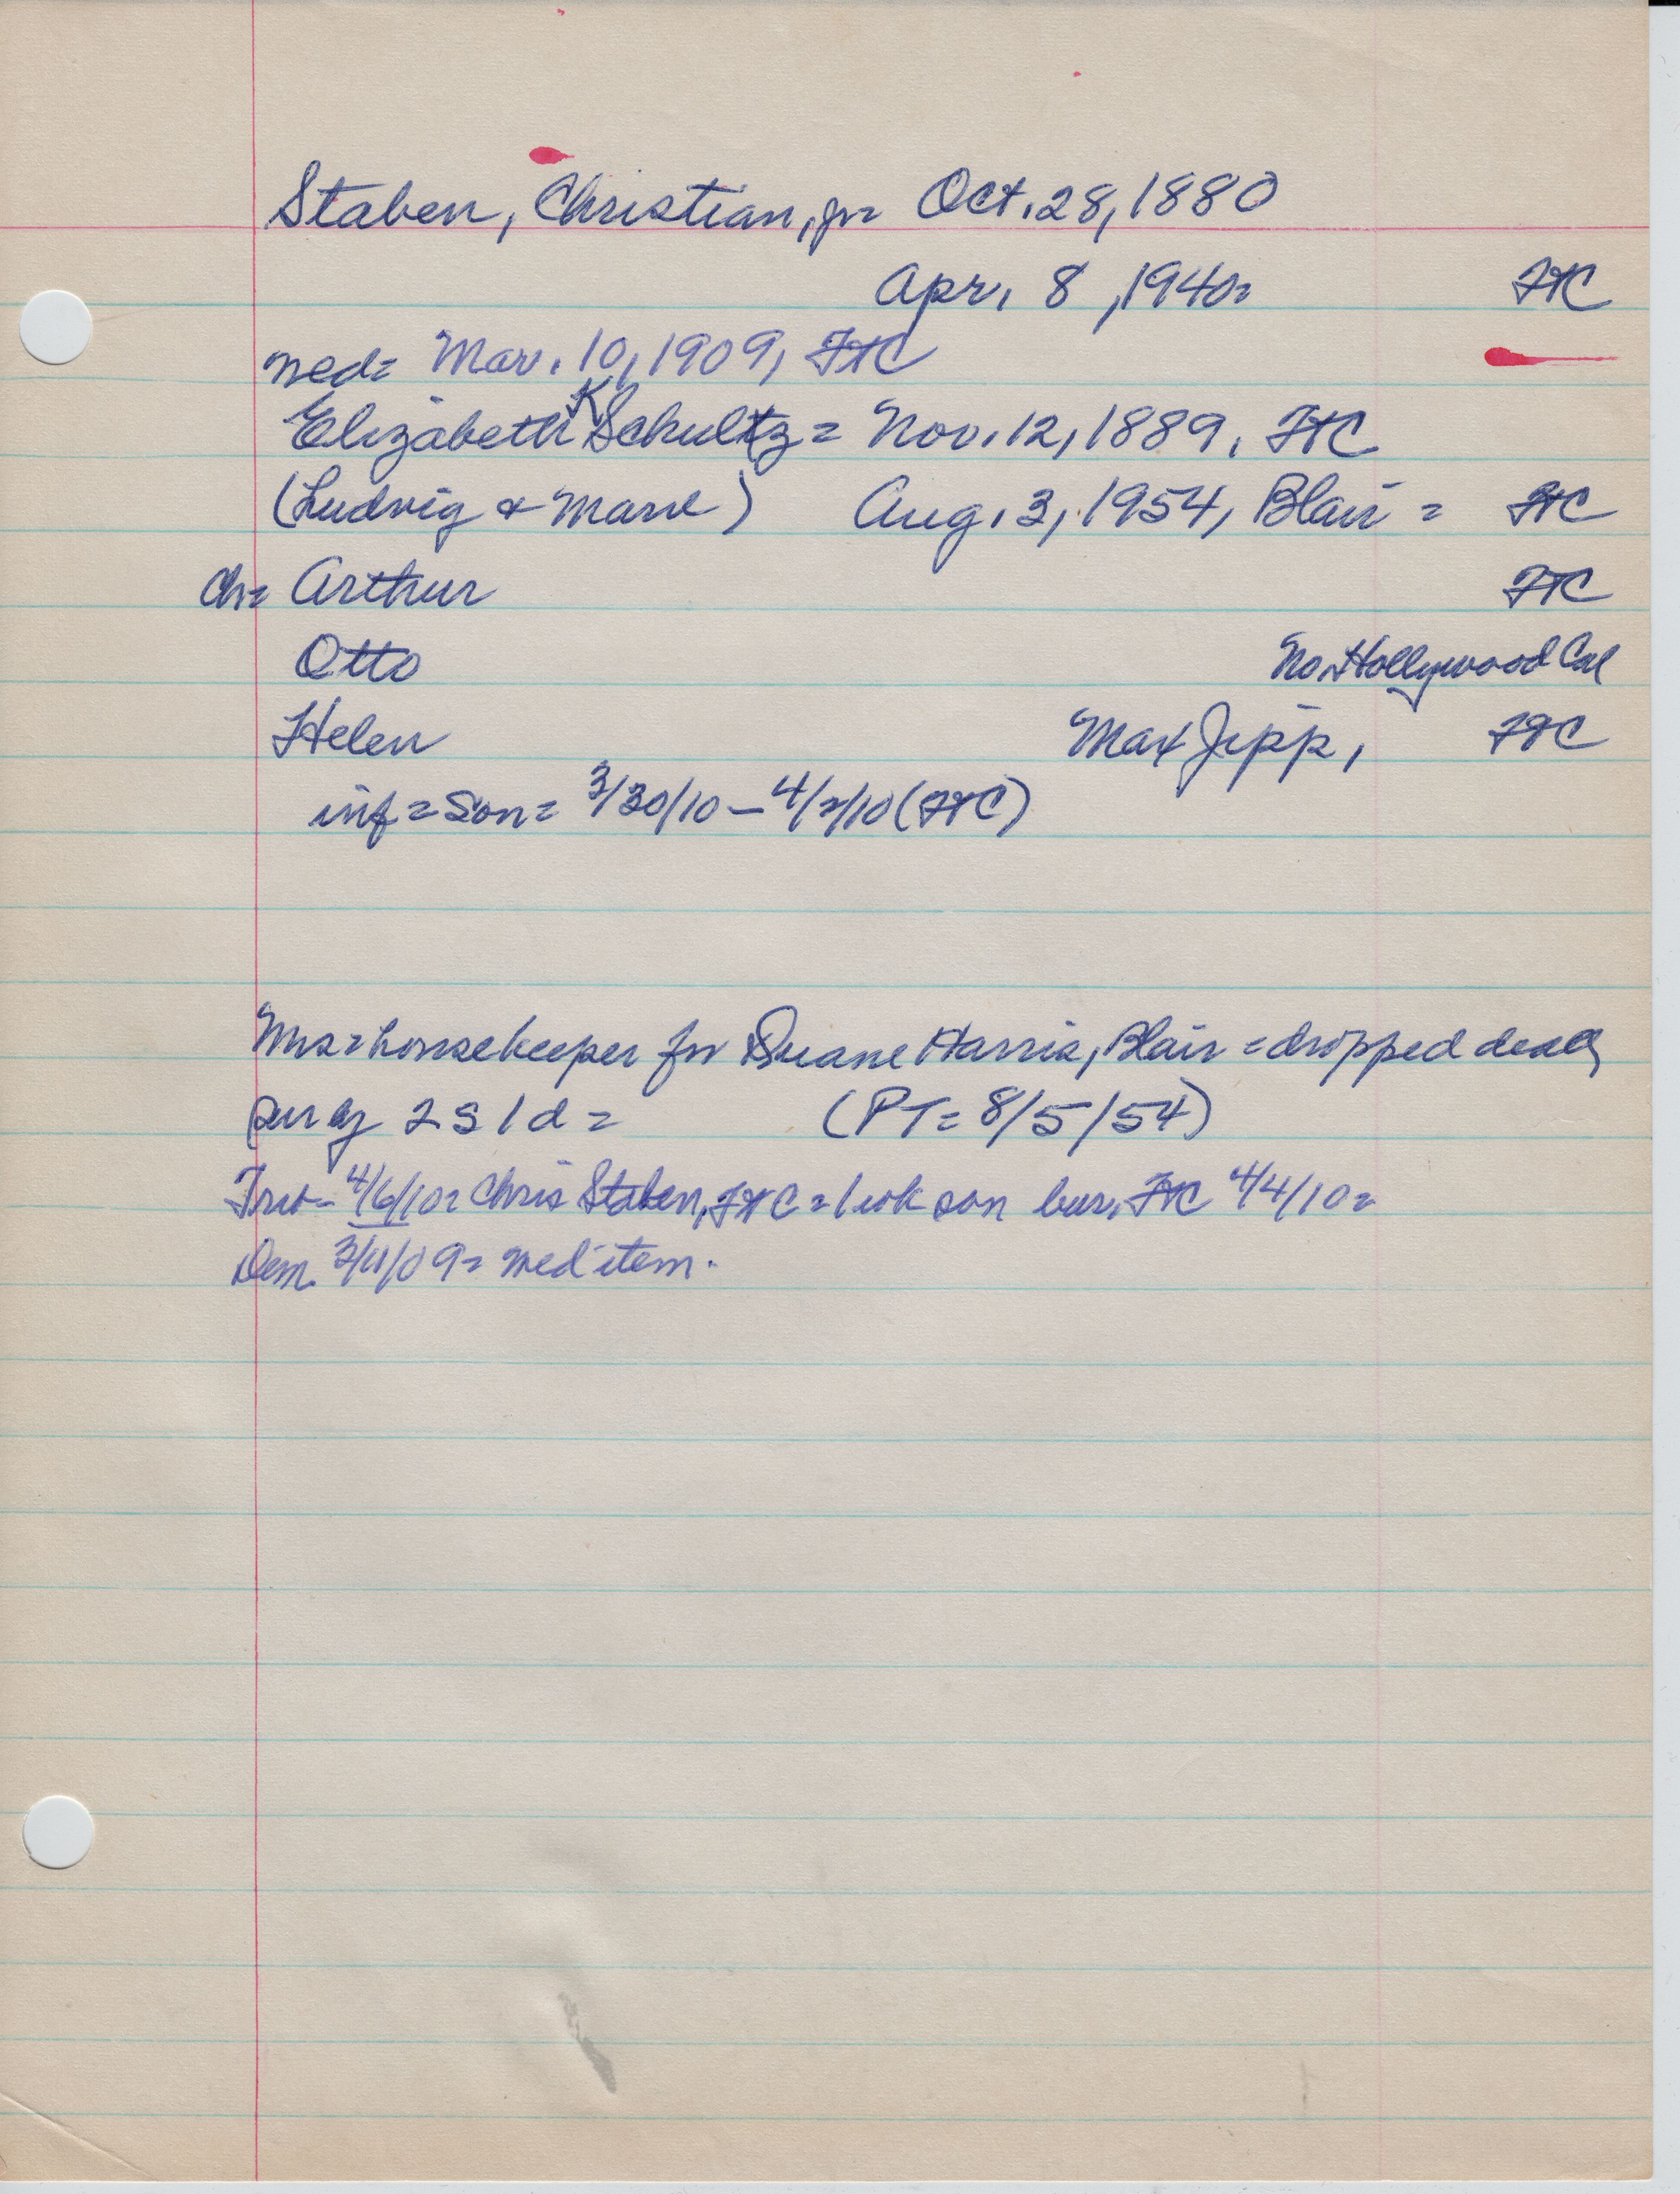 Staben, Christian, jr= Oct. 28, 1880
Apr. 8, 1940= FTC
wed= Mar. 10, 1909, FTC
K
Elizabeth Schultz = Nov. 12, 1889, FTC
(Ludvig & Marie) Aug. 3, 1954, Blair = FTC
ch= Arthur FTC
Otto No. Hollywood Cal
Helen Max Jipp, FTC
inf = son = 3/30/10 – 4/2/10 (FTC)
Mrs = housekeeper for Duane Harris, Blair = dropped dead,
surv by 2 S 1 d = (PT = 8/5/54)
4/6/10= Chris Staben, FTC = 1 wk son bur. FTC 4/4/10=
Dem. 3/11/09= wed item.